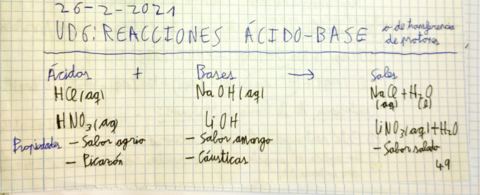 26-2-2021
UD6: REACCIONES ÁCIDO-BASE o de transferencia de protones
Ácidos + Bases → Sales
HCl(aq) NaOH(aq) NaCl + H₂O
(aq) (l)
HNO₃(aq) LiOH LiNO₃(aq) + H₂O
Propiedades - Sabor agrio - Sabor amargo - Sabor salado
- Picazón - Cáusticas
49